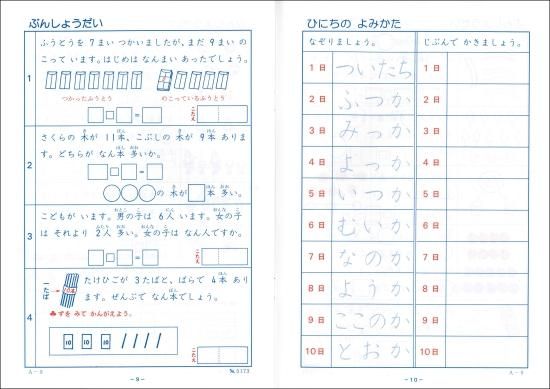 ぶんしょうだい
1
ふうとうを 7まい つかいましたが、まだ 9まい の
こって います。はじめは なんまい あったでしょう。
つかったふうとう
のこっているふうとう
□□□=□
こたえ
2
さくらの 木が 11本、こぶしの 木が 9本 ありま
す。どちらが なん本 多いか。
□□□=□
○○○の 木が□本 多い。
3
こどもが います。男の子は 6人 います。女の子
は それより 2人 多い。女の子は なん人ですか。
□□□=□
こたえ
4
一たば
たけひごが 3たばと、ばらで 4本 あり
ます。ぜんぶで なん本でしょう。
♣ずを みて かんがえよう。
10 10 10
A-8
№5173
-9-
ひにちの よみかた
なぞりましょう。
じぶんで かきましょう。
1日 ついたち 1日
2日 ふつか 2日
3日 みっか 3日
4日 よっか 4日
5日 いつか 5日
6日 むいか 6日
7日 なのか 7日
8日 ようか 8日
9日 ここのか 9日
10日 とおか 10日
-10-